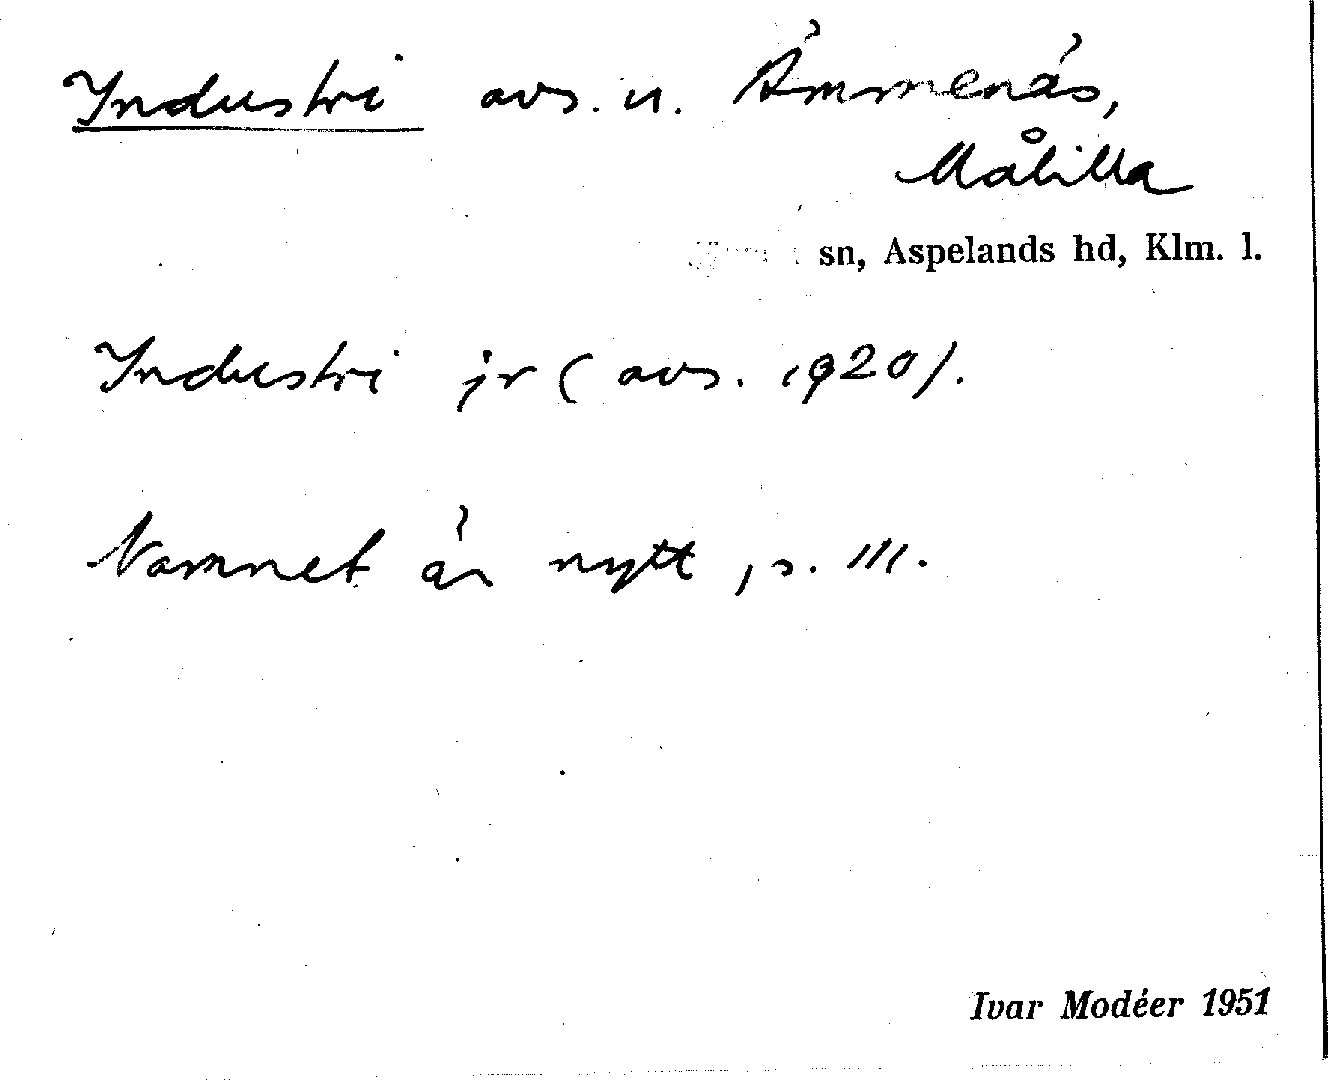 Industri avs. u. Ämmenäs,
Målilla
sn, Aspelands hd, Klm. l.
Industri jr (avs. 1920).
Namnet är nytt, s. III.
Ivar Modéer 1951